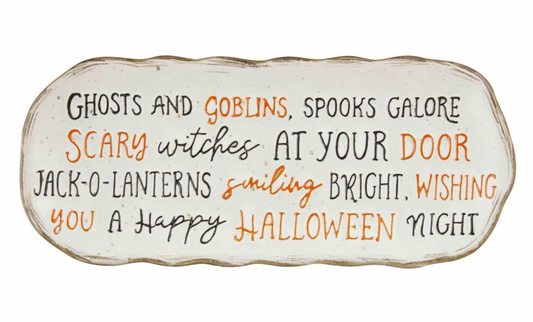 GHOSTS AND GOBLINS, SPOOKS GALORE
SCARY witches AT YOUR DOOR
JACK-O-LANTERNS smiling BRIGHT, WISHING
YOU A Happy HALLOWEEN NIGHT